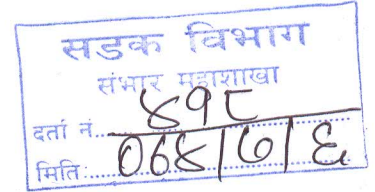 सडक विभाग
संभार महाशाखा
दर्ता नं....४१८
मिति:....०६४/७/६